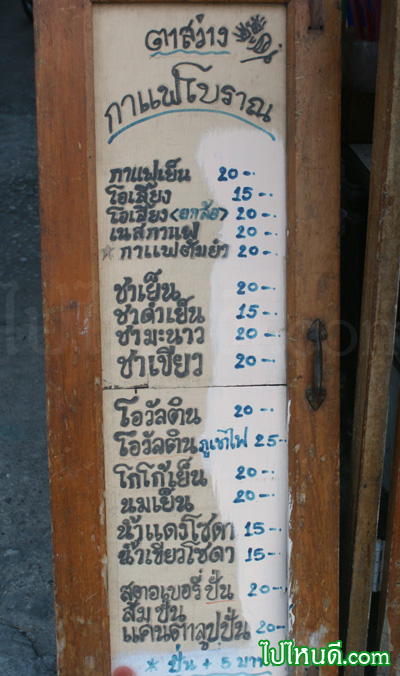 ตาสว่าง
กาแฟโบราณ
กาแฟเย็น 20-.
โอเลี้ยง 15-.
โอเลี้ยง<ยกล้อ> 20-.
เนสกาแฟ 20-.
* กาแฟต้มยำ 20-.
ชาเย็น 20-.
ชาดำเย็น 15-.
ชามะนาว 20-.
ชาเขียว 20-.
โอวัลติน 20-.
โอวัลตินภูเขาไฟ 25-.
โกโก้เย็น 20-.
นมเย็น 20-.
น้ำแดงโซดา 15-.
น้ำเขียวโซดา 15-.
สตอเบอรี่ ปั่น 20-.
ส้ม ปั่น
แคนตาลูปปั่น 20-.
* ปั่น + 5 บาท
ไปไหนดี.com